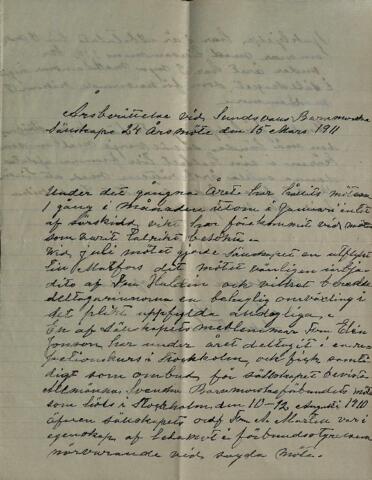 Årsberättelse vid Sundsvalls Barnmorske
Sällskaps 24 Års möte den 15 Mars 1911
Under det gångna Året har hållits möten
1 gång i månaden utom i Januari intet
af särskild vikt har förekommit vid möten
som varit talrikt besökta.
Vid Juli mötet gjorde Sällskapet en utflygt
till Matfors dit mötet vänligen inbju
dits af Fru Huldin och vilket beredde
deltagarinnorna en behaglig omväxling i
det plikt uppfyllda
En af Sällskapets medlemmar Fru Elin
Jonson har under året deltagit i en re
petitionskurs i Stockholm, och fick samti
digt som ombud för sällskapet bevista
Allmänna Svenska Barnmorskeförbundets möte
som hölls i Stockholm den 10-12 Augusti 1910
Äfven sällskapets ordf Fru A. Martin var i
egenskap af ledamot i förbundsstyrelsen
närvarande vid sagda möte.